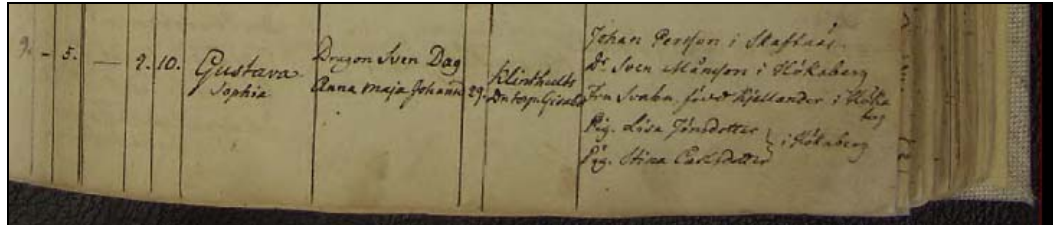 9. - 5. — 9. 10. Gustava
Sophia
Dragon Sven Dag
Anna Maja Johansd
29.
Klinthults
Johan Persson i Skaftaås.
Dr Sven Månsson i Hökaberg
Fru Svahn, född Kjellander i Höka
berg
Pig. Lisa Jönsdotter
Pig. Stina Carlsdotter } i Hökaberg